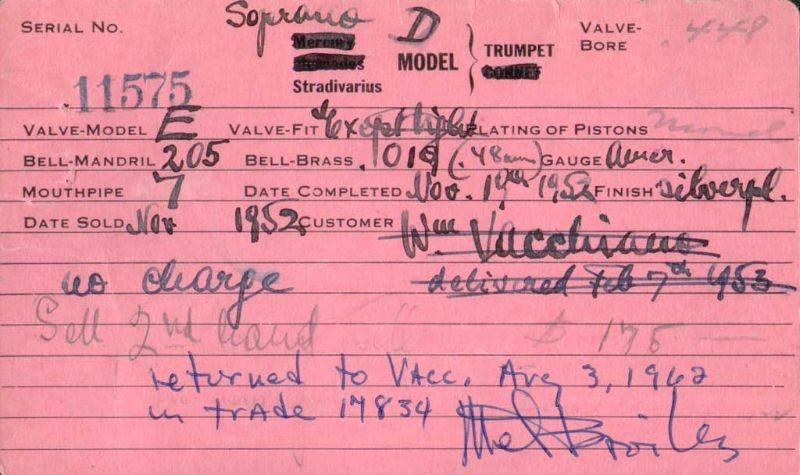 Soprano
SERIAL NO. Mercury D MODEL TRUMPET VALVE-BORE .448
Stradivarius CORNET
11575
VALVE-MODEL E VALVE-FIT Except tight PLATING OF PISTONS
BELL-MANDRIL 205 BELL-BRASS .019 (.48mm) GAUGE Amer.
MOUTHPIPE 7 DATE COMPLETED Nov. 19th 1952 FINISH silverpl.
DATE SOLD Nov 1952 CUSTOMER Wm Vacchiano
no charge delivered Feb 7th 1953
Sell 2nd hand $ 175 —
returned to VAcc. Aug 3, 1962
in trAde 17834 Mel Broiles